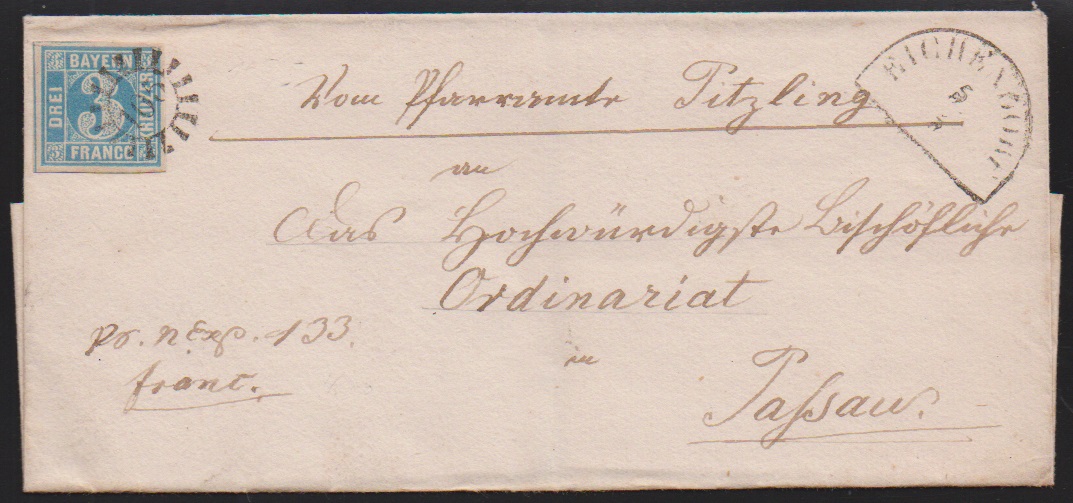 BAYERN
DREI
3
KREUZER
FRANCO
EICHENDORF
5
Vom Pfarramte Titzling
an
Das Hochwürdigste Bischöfliche
Ordinariat
in
Passau.
pr. n Exp. 133.
franc.